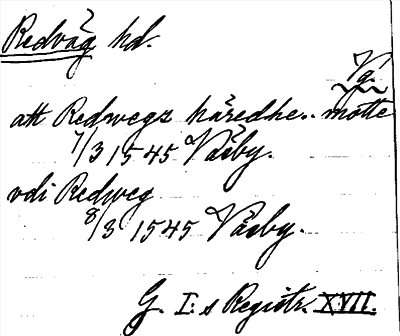 Redväg hd.
Vg.
att Redwegz häredhe.. motte
7/3 1545 Väsby.
vdi Redweg
8/3 1545 Väsby.
G. I:s Registr. XVII.